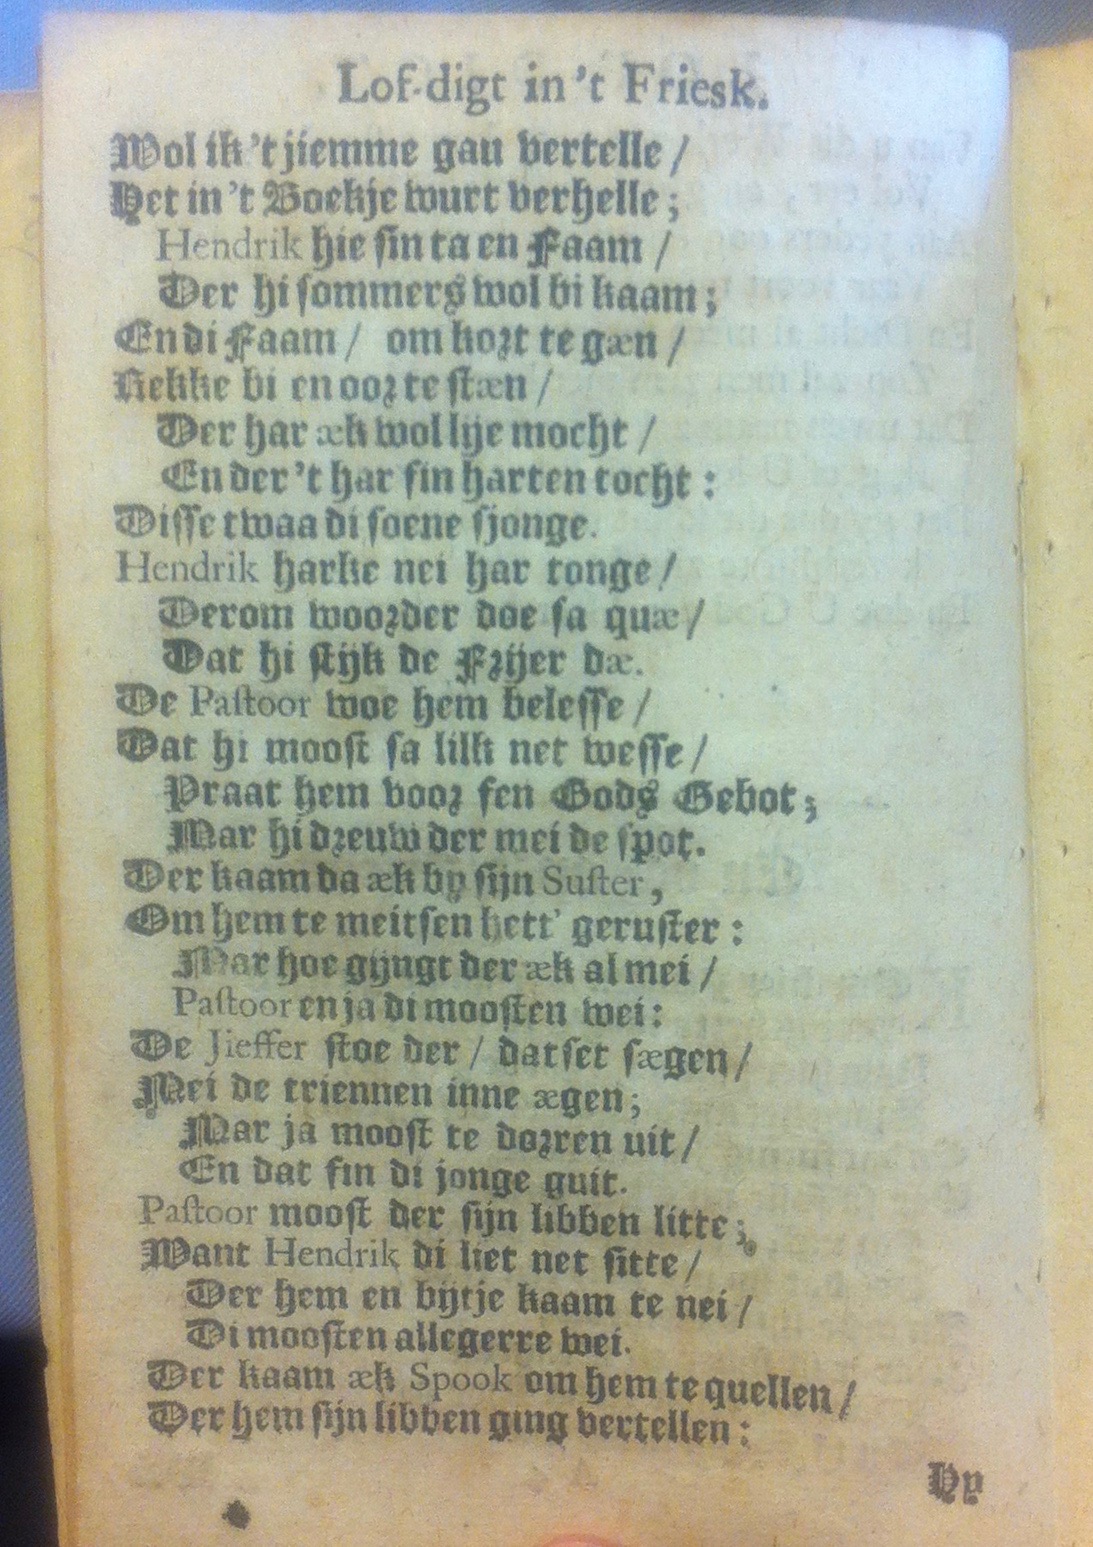 Lof-digt in 't Friesk.
Wol ik 't jiemme gau vertelle /
Het in 't Boekje wurt verhelle ;
Hendrik hie sin ta en Faam /
Der hi sommers wol bi kaam ;
En di Faam / om kort te gæn /
Lekke bi en oor te stæn /
Der har æk wol lije mocht /
En der 't har sin harten tocht :
Disse twaa di soene sjonge.
Hendrik harke nei har tonge /
Derom woorder doe sa quæ /
Dat hi stijk de Frijer dæ.
De Pastoor woe hem belesse /
Dat hi moost sa lilk net wesse /
Praat hem voor fen Gods Gebot ;
Mar hi dreuw der mei de spot.
Der kaam da æk by sijn Suster ,
Om hem te meitsen hett' geruster :
Mar hoe gijngt der æk al mei /
Pastoor en ja di moosten wei :
De Jieffer stoe der / dat set sægen /
Mei de triennen inne ægen ;
Mar ja moost te dorren uit /
En dat fin di jonge guit.
Pastoor moost der sijn libben litte ;
Want Hendrik di liet net sitte /
Der hem en bijtje kaam te nei /
Di moosten allegerre wei.
Der kaam æk Spook om hem te quellen /
Der hem sijn libben ging vertellen :
Hy